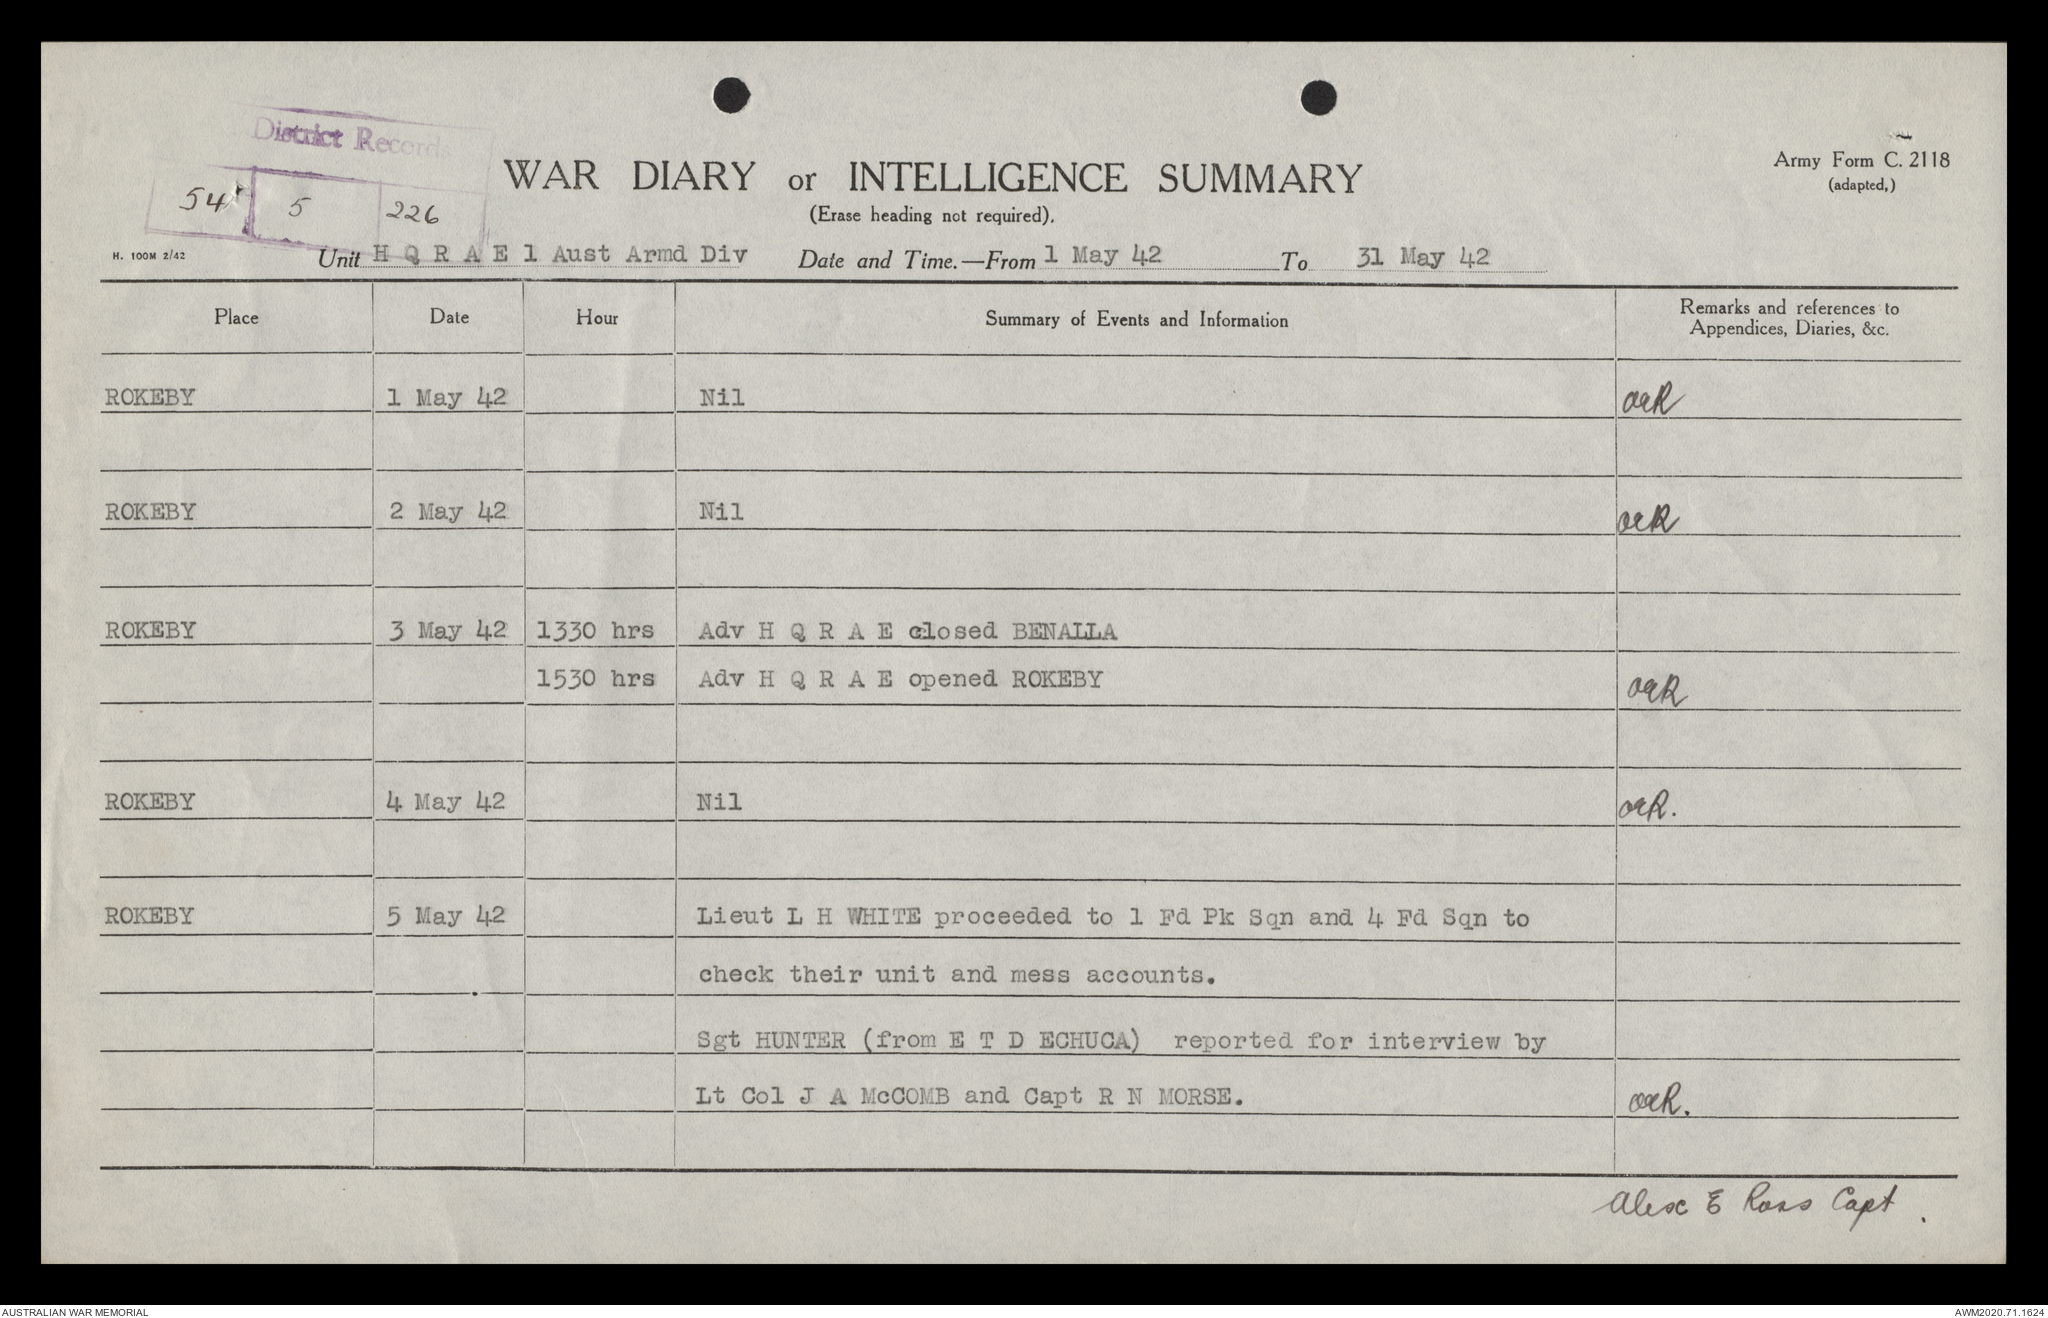 District Records
54 5 226
WAR DIARY or INTELLIGENCE SUMMARY
(Erase heading not required).
Army Form C. 2118
(adapted,)
H. 100M 2/42
Unit H Q R A E 1 Aust Armd Div Date and Time.—From 1 May 42 To 31 May 42
Place Date Hour Summary of Events and Information Remarks and references to
Appendices, Diaries, &c.
ROKEBY 1 May 42 Nil aeR
ROKEBY 2 May 42 Nil aeR
ROKEBY 3 May 42 1330 hrs Adv H Q R A E closed BENALLA
1530 hrs Adv H Q R A E opened ROKEBY aeR
ROKEBY 4 May 42 Nil aeR.
ROKEBY 5 May 42 Lieut L H WHITE proceeded to 1 Fd Pk Sqn and 4 Fd Sqn to
check their unit and mess accounts.
Sgt HUNTER (from E T D ECHUCA) reported for interview by
Lt Col J A McCOMB and Capt R N MORSE. aeR.
Alex E Ross Capt.
AUSTRALIAN WAR MEMORIAL AWM2020.71.1624